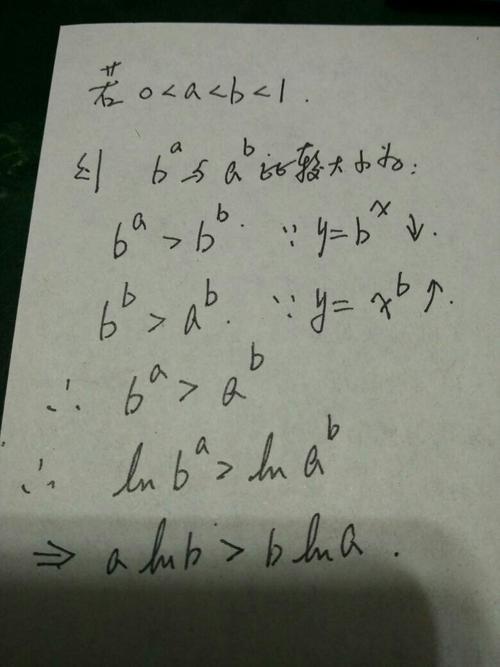 若 0<a<b<1.
则 b^a 与 a^b 比较大小为:
b^a > b^b. ∵ y=b^x ↓.
b^b > a^b. ∵ y= x^b ↑.
∴ b^a > a^b
∴ ln b^a > ln a^b
⇒ a ln b > b ln a .